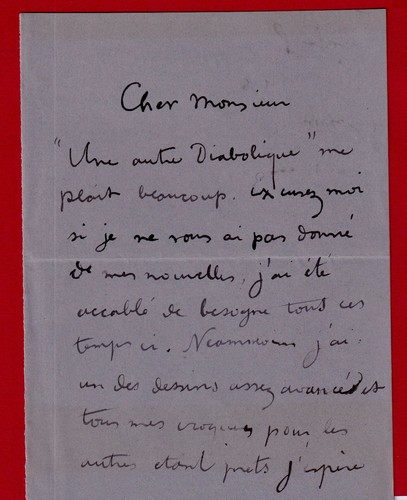 Cher Monsieur
"Une autre Diabolique" me
plait beaucoup. Excusez moi
si je ne vous ai pas donné
de mes nouvelles, j'ai été
accablé de besogne tous ces
temps ci. Neanmoins j'ai
un des dessins assez avancé et
tous mes croquis pour les
autres étant prets j'espère